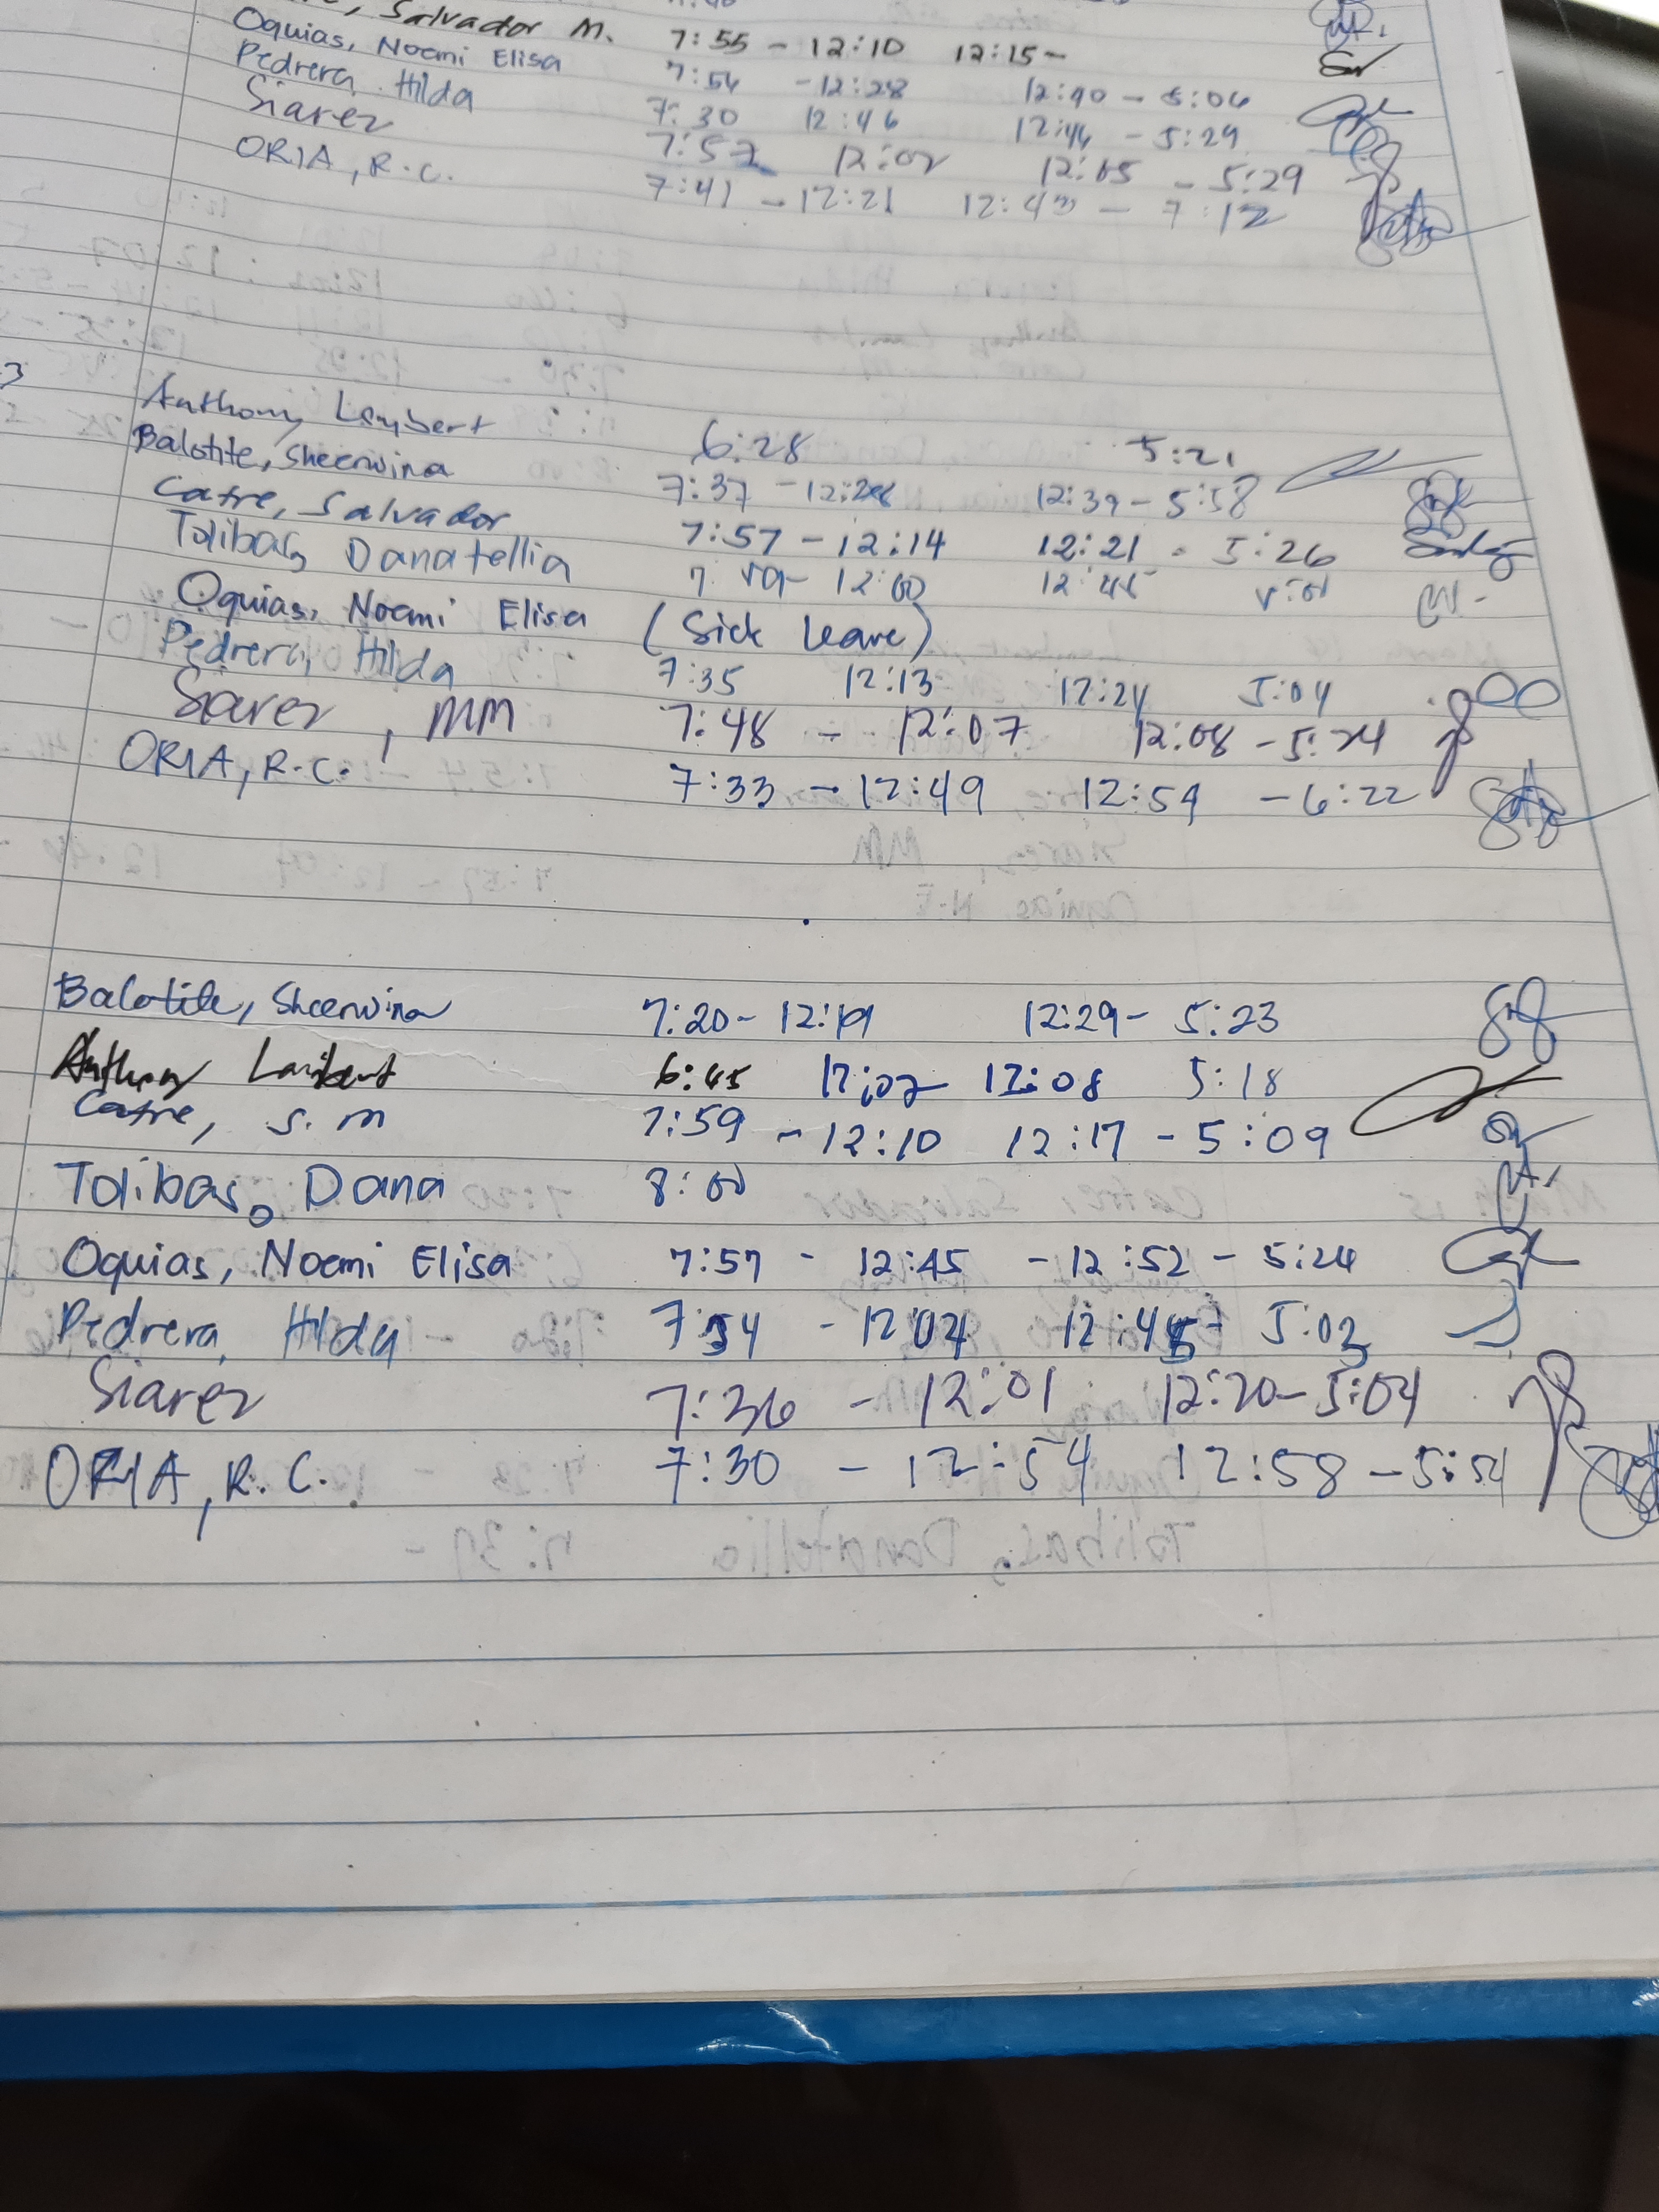 Salvador M. 7:55 - 12:10 12:15 -
Oquias, Noemi Elisa 7:54 - 12:28 12:40 - 5:06
Pedrera, Hilda 7:30 12:46 12:46 - 5:29
Siarez 7:57 12:02 12:05 - 5:29
ORIA, R.C. 7:41 - 12:21 12:43 - 7:12
3
Anthony Lambert 6:28 5:21
Balotite, Sheerwina 7:37 - 12:28 12:39 - 5:58
Catre, Salvador 7:57 - 12:14 12:21 - 5:26
Tolibas, Danatellia 12:00 12:45
Oquias, Noemi Elisa (Sick leave)
Pedrera, Hilda 7:35 12:13 12:24 5:04
Siarez, MM 7:48 - 12:07 12:08 - 5:24
ORIA, R.C. 7:33 - 12:49 12:54 - 6:22
Balotite, Sheerwina 7:20 - 12:19 12:29 - 5:23
Anthony Lambert 6:45 12:02 12:08 5:18
Catre, S.M 7:59 - 12:10 12:17 - 5:09
Tolibas, Dana 8:00
Oquias, Noemi Elisa 7:57 - 12:45 - 12:52 - 5:24
Pedrera, Hilda 7:54 - 12:04 12:45 - 5:03
Siarez 7:36 - 12:01 12:20 - 5:04
ORIA, R.C. 7:30 - 12:54 12:58 - 5:54